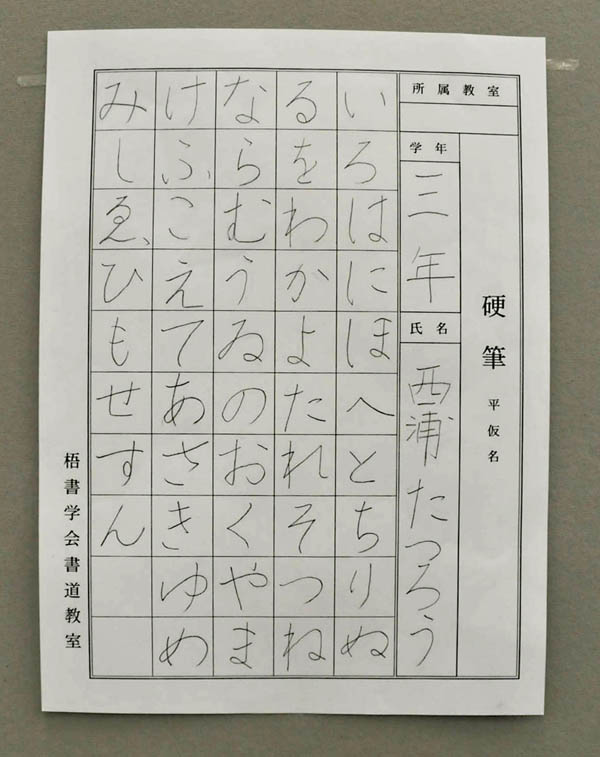 硬筆 平仮名
所属教室
学年
三年
氏名
西浦たつろう
いろはにほへとちりぬ
るをわかよたれそつね
ならむうゐのおくやま
けふこえてあさきゆめ
みしゑひもせすん
梧書学会書道教室